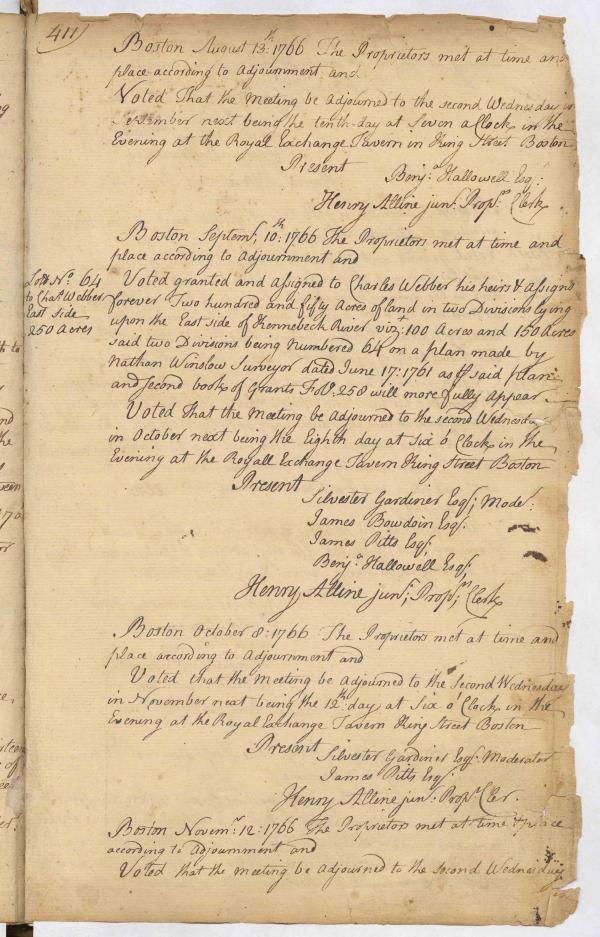 411
Boston August 13th: 1766 The Proprietors met at time and
place according to Adjournment and
Voted That the Meeting be Adjourned to the second Wednesday in
September next being the tenth day at Seven a Clock in the
Evening at the Royal Exchange Tavern in King Street Boston
Present
Benja Hallowell Esqr:
Henry Alline junr. Proprs Clerk.
Boston Septemr, 10th: 1766 The Proprietors met at time and
place according to Adjournment and
Lott No 64
to Chas Webber
East side
250 Acres
Voted granted and assigned to Charles Webber his heirs & Assigns
forever Two hundred and fifty Acres of land in two Divisions lying
upon the East side of Kennebeck River viz: 100 Acres and 150 Acres
said two Divisions being numbered 64 on a plan made by
Nathan Winslow Surveyor dated June 17: 1761 as Pr said plan
and second book of Grants Folo: 258 will more fully Appear.
Voted That the Meeting be Adjourned to the second Wednesday
in October next being the Eighth day at Six o' Clock in the
Evening at the Royall Exchange Tavern King Street Boston
Present
Silvester Gardiner Esqr; Moder:
James Bowdoin Esqr.
James Pitts Esqr;
Benja Hallowell Esqr
Henry Alline junr; Proprs; Clerk
Boston October 8: 1766 The Proprietors met at time and
place according to Adjournment and
Voted that the Meeting be Adjourned to the Second Wednesday
in November next being the 12th: day at Six o' Clock in the
Evening at the Royal Exchange Tavern King Street Boston
Present
Silvester Gardiner Esqr. Moderator
James Pitts Esqr.
Henry Alline junr. Proprs Cler.
Boston Novemr 12: 1766 The Proprietors met at time & place
according to Adjournment and
Voted that the Meeting be Adjourned to the Second Wednesday